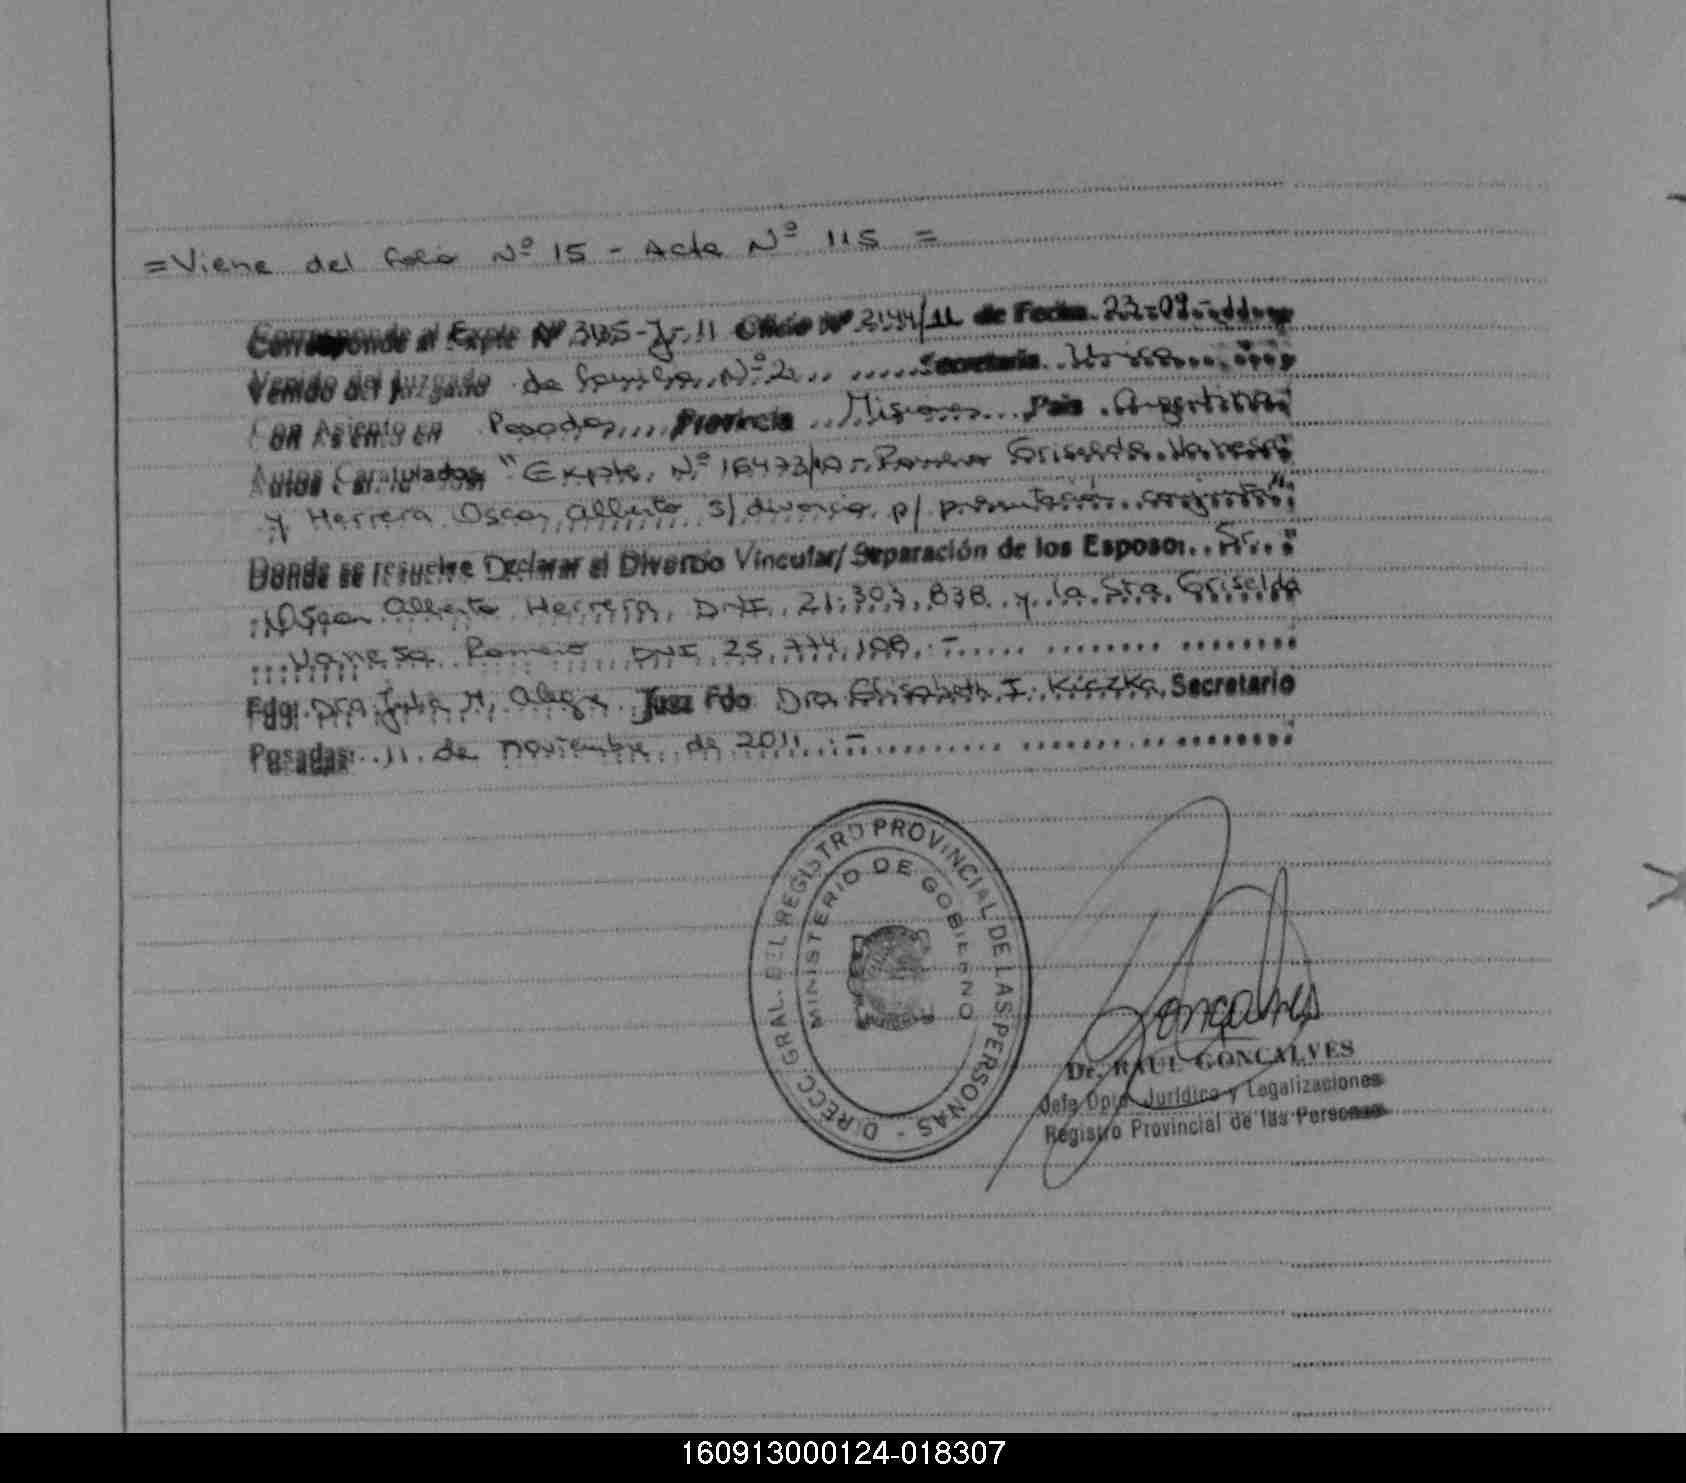 =Viene del folio Nº 15 - Acta Nº 115 =
Corresponde al Expte Nº -J-11 Oficio Nº 2144/11 de Fecha 23-09-11
Venido del Juzgado de familia Nº 2 Secretaria Unica
Con Asiento en Posadas Provincia Misiones Pais Argentina
Autos Caratulados "Expte. Nº 16473/10 - Romero Griselda Vanesa
y Herrera Oscar Alberto s/ divorcio p/ presentación conjunta"
Donde se resuelve Declarar el Divorcio Vincular/Separación de los Esposos Sr.
Oscar Alberto Herrera, DNI 21.303.838 y la Sra Griselda
Vanesa Romero DNI 25.774.108.-
Fdo: Dra Julia M. Alegre Juez Fdo Dra Elisabeth I. Kiczka Secretario
Posadas: 11 de noviembre de 2011.-
DIRECC. GRAL. DEL REGISTRO PROVINCIAL DE LAS PERSONAS -
MINISTERIO DE GOBIERNO
Gonçalves
Dr. RAUL GONCALVES
Jefe Dpto. Jurídico y Legalizaciones
Registro Provincial de las Personas
160913000124-018307